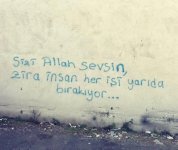 Sizi Allah sevsin,
zira insan her işi yarıda
bırakıyor...